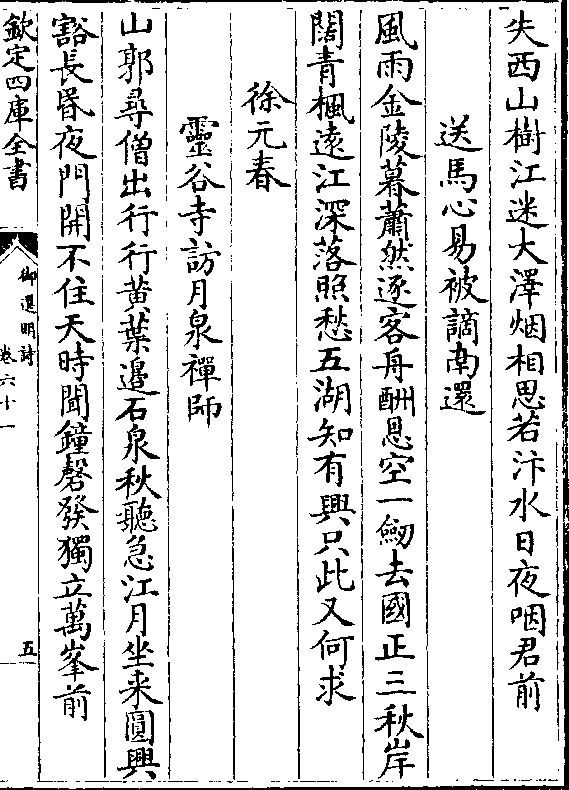 失西山樹江迷大澤烟相思若汴水日夜咽君前
送馬心易被謫南還
風雨金陵暮蕭然逐客舟酬恩空一劒去國正三秋岸
闊青楓遠江深落照愁五湖知有興只此又何求
徐元春
靈谷寺訪月泉禪師
山郭尋僧出行行黄葉邊石泉秋聽急江月坐来圓興
豁長昬夜門開不住天時聞鐘磬發獨立萬峯前
欽定四庫全書
御選明詩
卷六十一
五